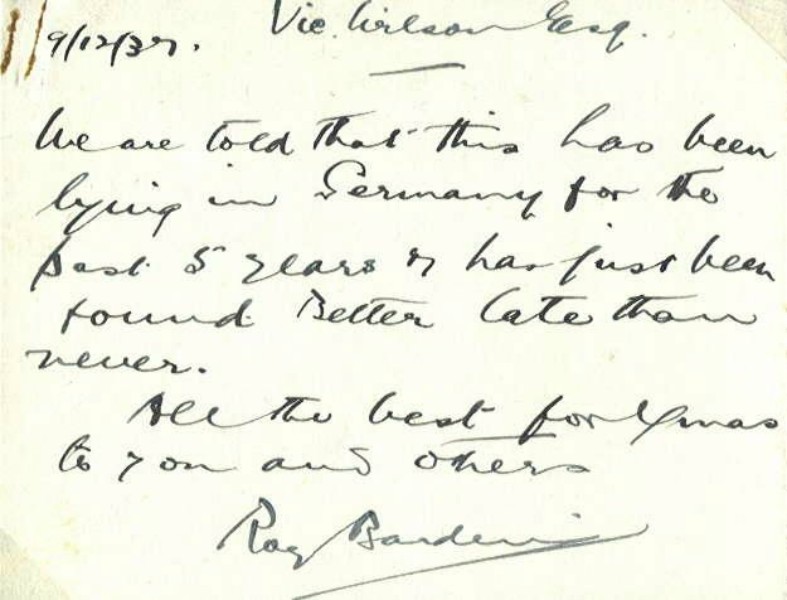 Vic. Wilson Esq.
9/12/37.
We are told that this has been
lying in Germany for the
past 5 years & has just been
found Better late than
never.
All the best for Xmas
to you and others
Roy